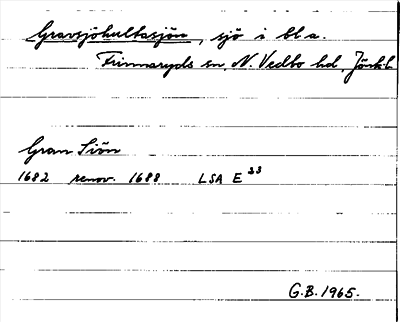 Gransjöhultasjön, sjö i bl a.
Frinnaryds sn, N. Vedbo hd, Jönk.l.
Gran Siön
1682 renov. 1688 LSA E 23
G.B. 1965.